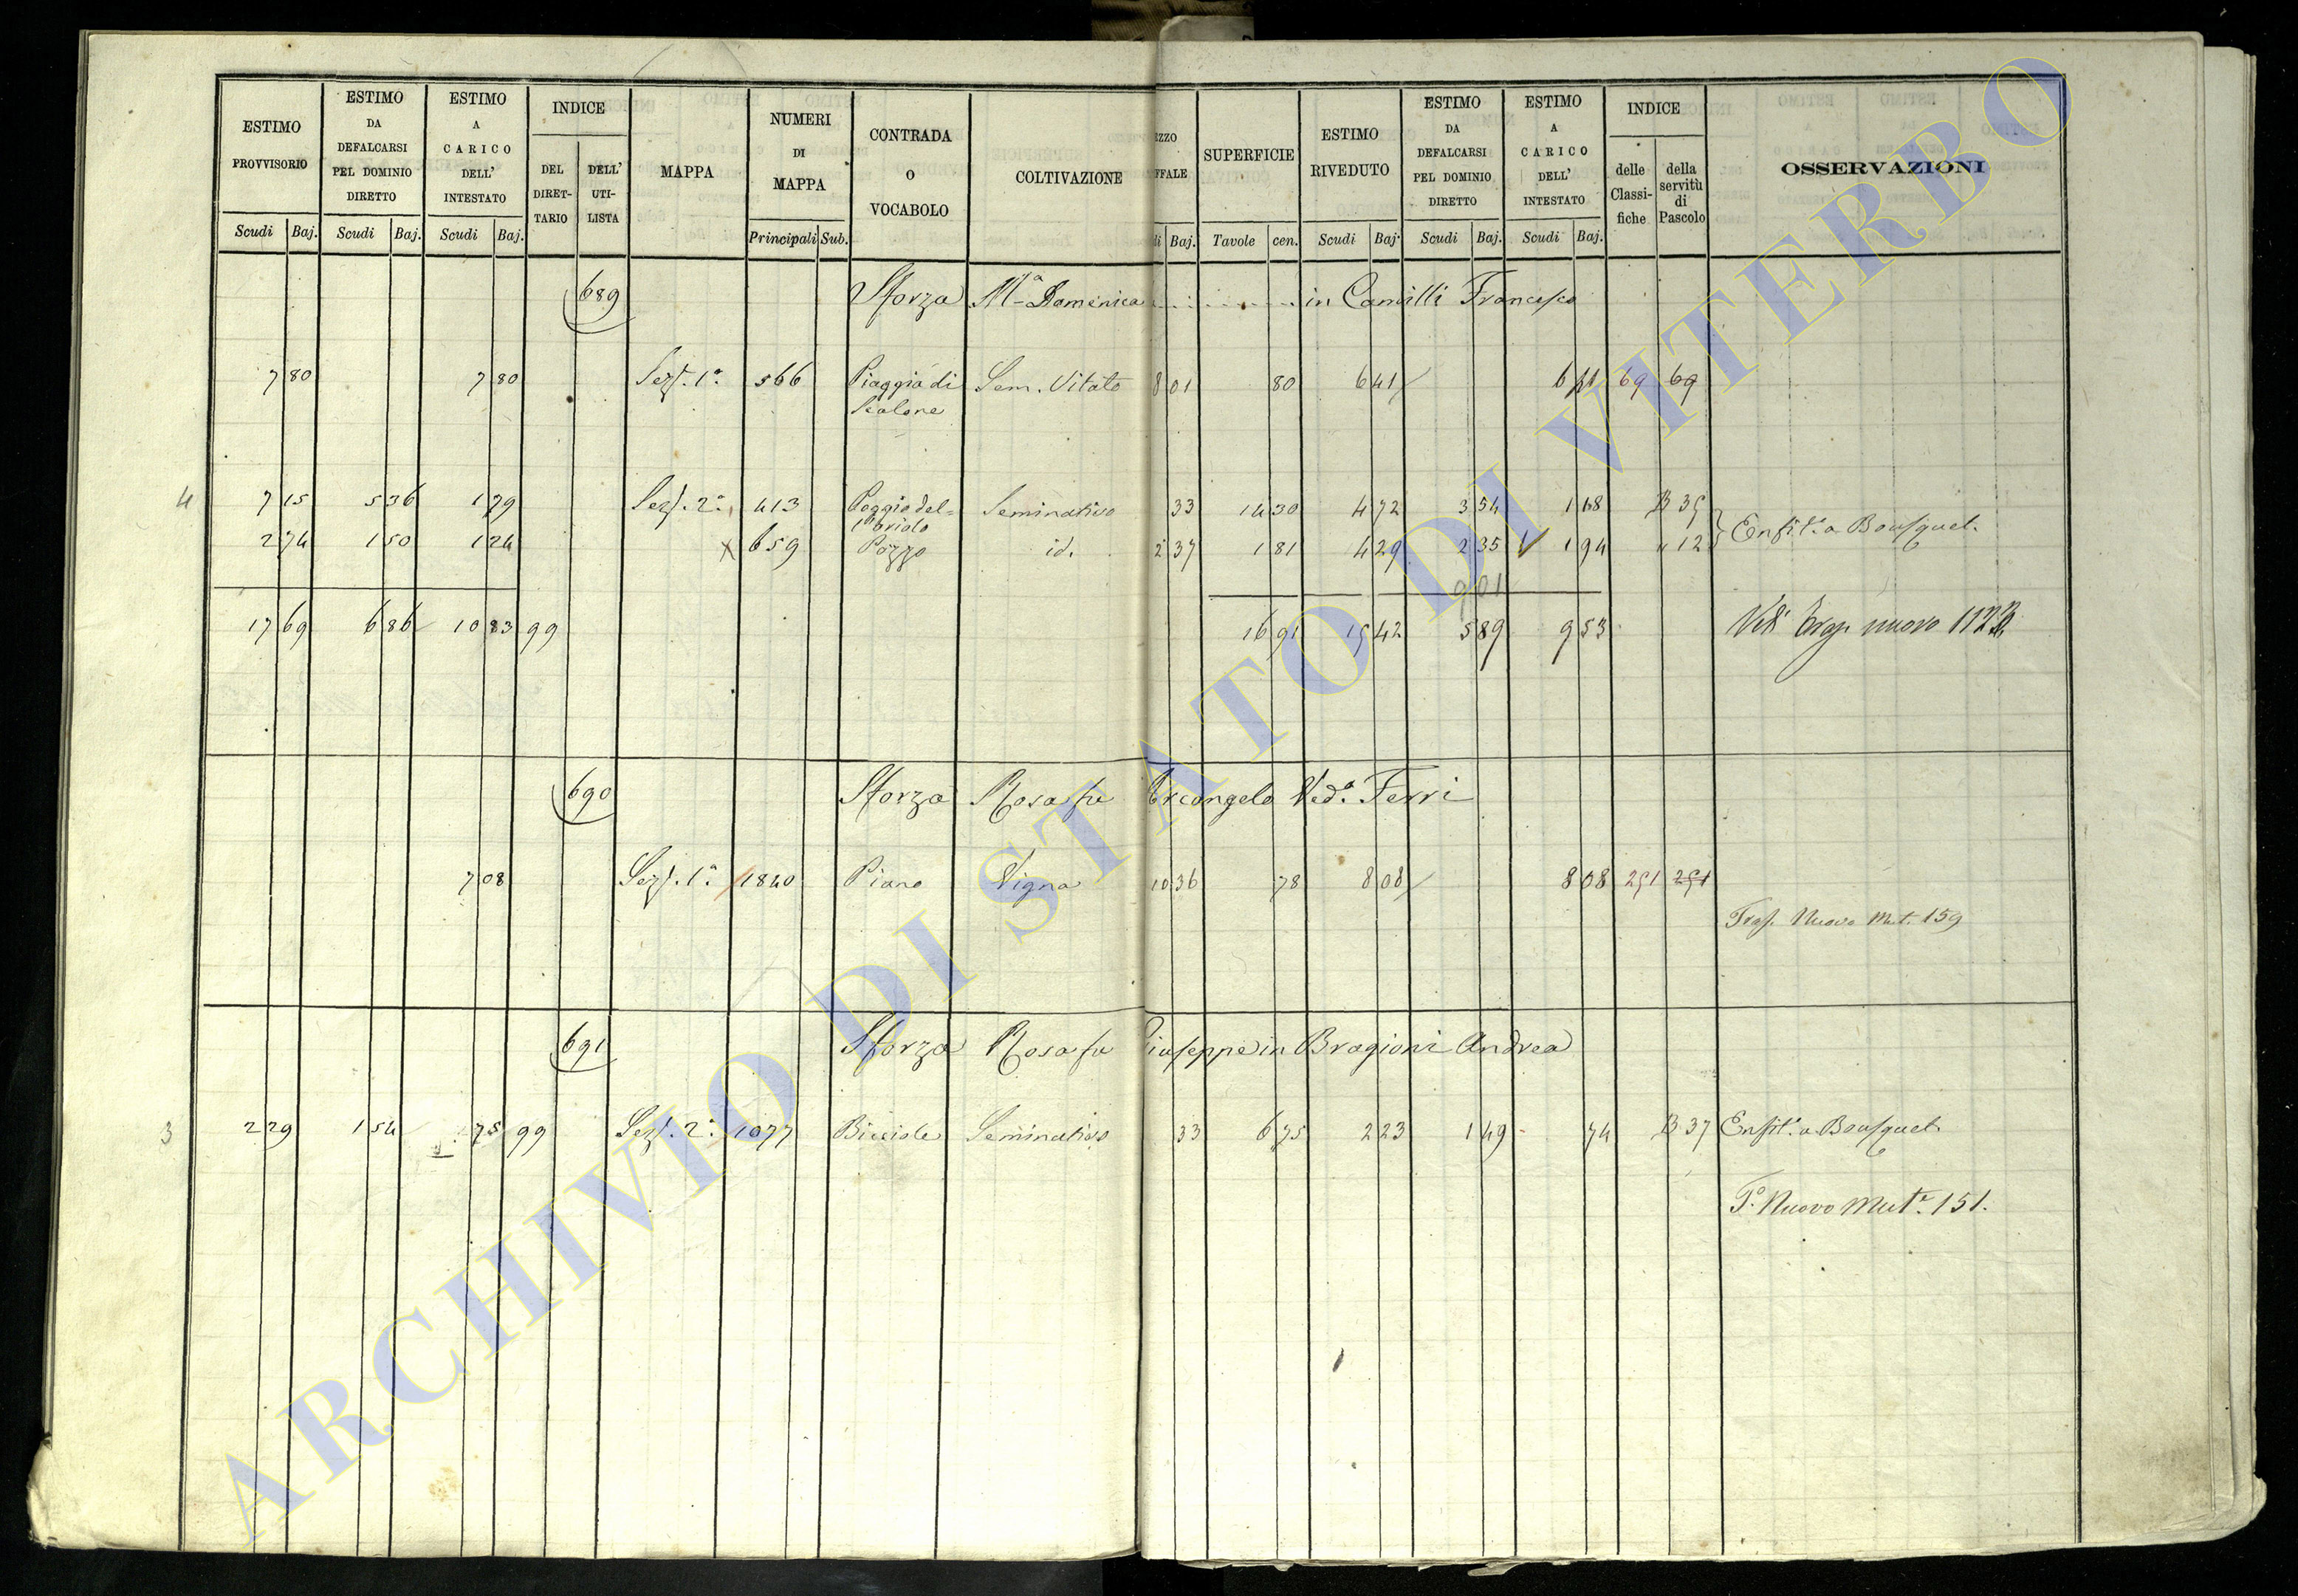 ESTIMO PROVVISORIO | ESTIMO DA DEFALCARSI PEL DOMINIO DIRETTO | ESTIMO A CARICO DELL' INTESTATO | INDICE DEL DIRETTARIO | DELL' UTILISTA | MAPPA | NUMERI DI MAPPA | CONTRADA O VOCABOLO | COLTIVAZIONE | EZZO FFALE | SUPERFICIE | ESTIMO RIVEDUTO | ESTIMO DA DEFALCARSI PEL DOMINIO DIRETTO | ESTIMO A CARICO DELL' INTESTATO | INDICE delle Classifiche | della servitù di Pascolo | OSSERVAZIONI
Scudi Baj. Scudi Baj. Scudi Baj. Principali Sub. di Baj. Tavole cen. Scudi Baj. Scudi Baj. Scudi Baj.
689 Sforza Mª Domenica in Camilli Francesco
7 80 7 80 Sez. 1ª 566 Piaggia di Sem. Vitato 8 01 80 6 41 6 41 69 69
Scalone
4 7 15 5 36 1 79 Sez. 2ª 413 Poggio del= Seminativo 33 14 30 4 72 3 54 1 18 B 35
2 74 1 50 1 24 659 Pozzo id. 2 37 1 81 4 29 2 35 1 94 " 12 Enfit. a Bousquet.
9 01
17 69 6 86 10 83 99 16 91 15 42 5 89 9 53 nuovo
690 Sforza Rosa fu Arcangelo Ved.ª Ferri
7 08 Sez. 1ª 1840 Piano Vigna 10 36 78 8 08 8 08 251 251
Trasp. Nuovo Mut. 159
691 Sforza Rosa fu Giuseppe in Bragioni Andrea
3 2 29 1 54 75 99 Sez. 2ª 1077 Bicciole Seminativo 33 6 75 2 23 1 49 74 B 37 Enfit. a Bousquet.
Tº Nuovo Mut.e 151.
ARCHIVIO DI STATO DI VITERBO